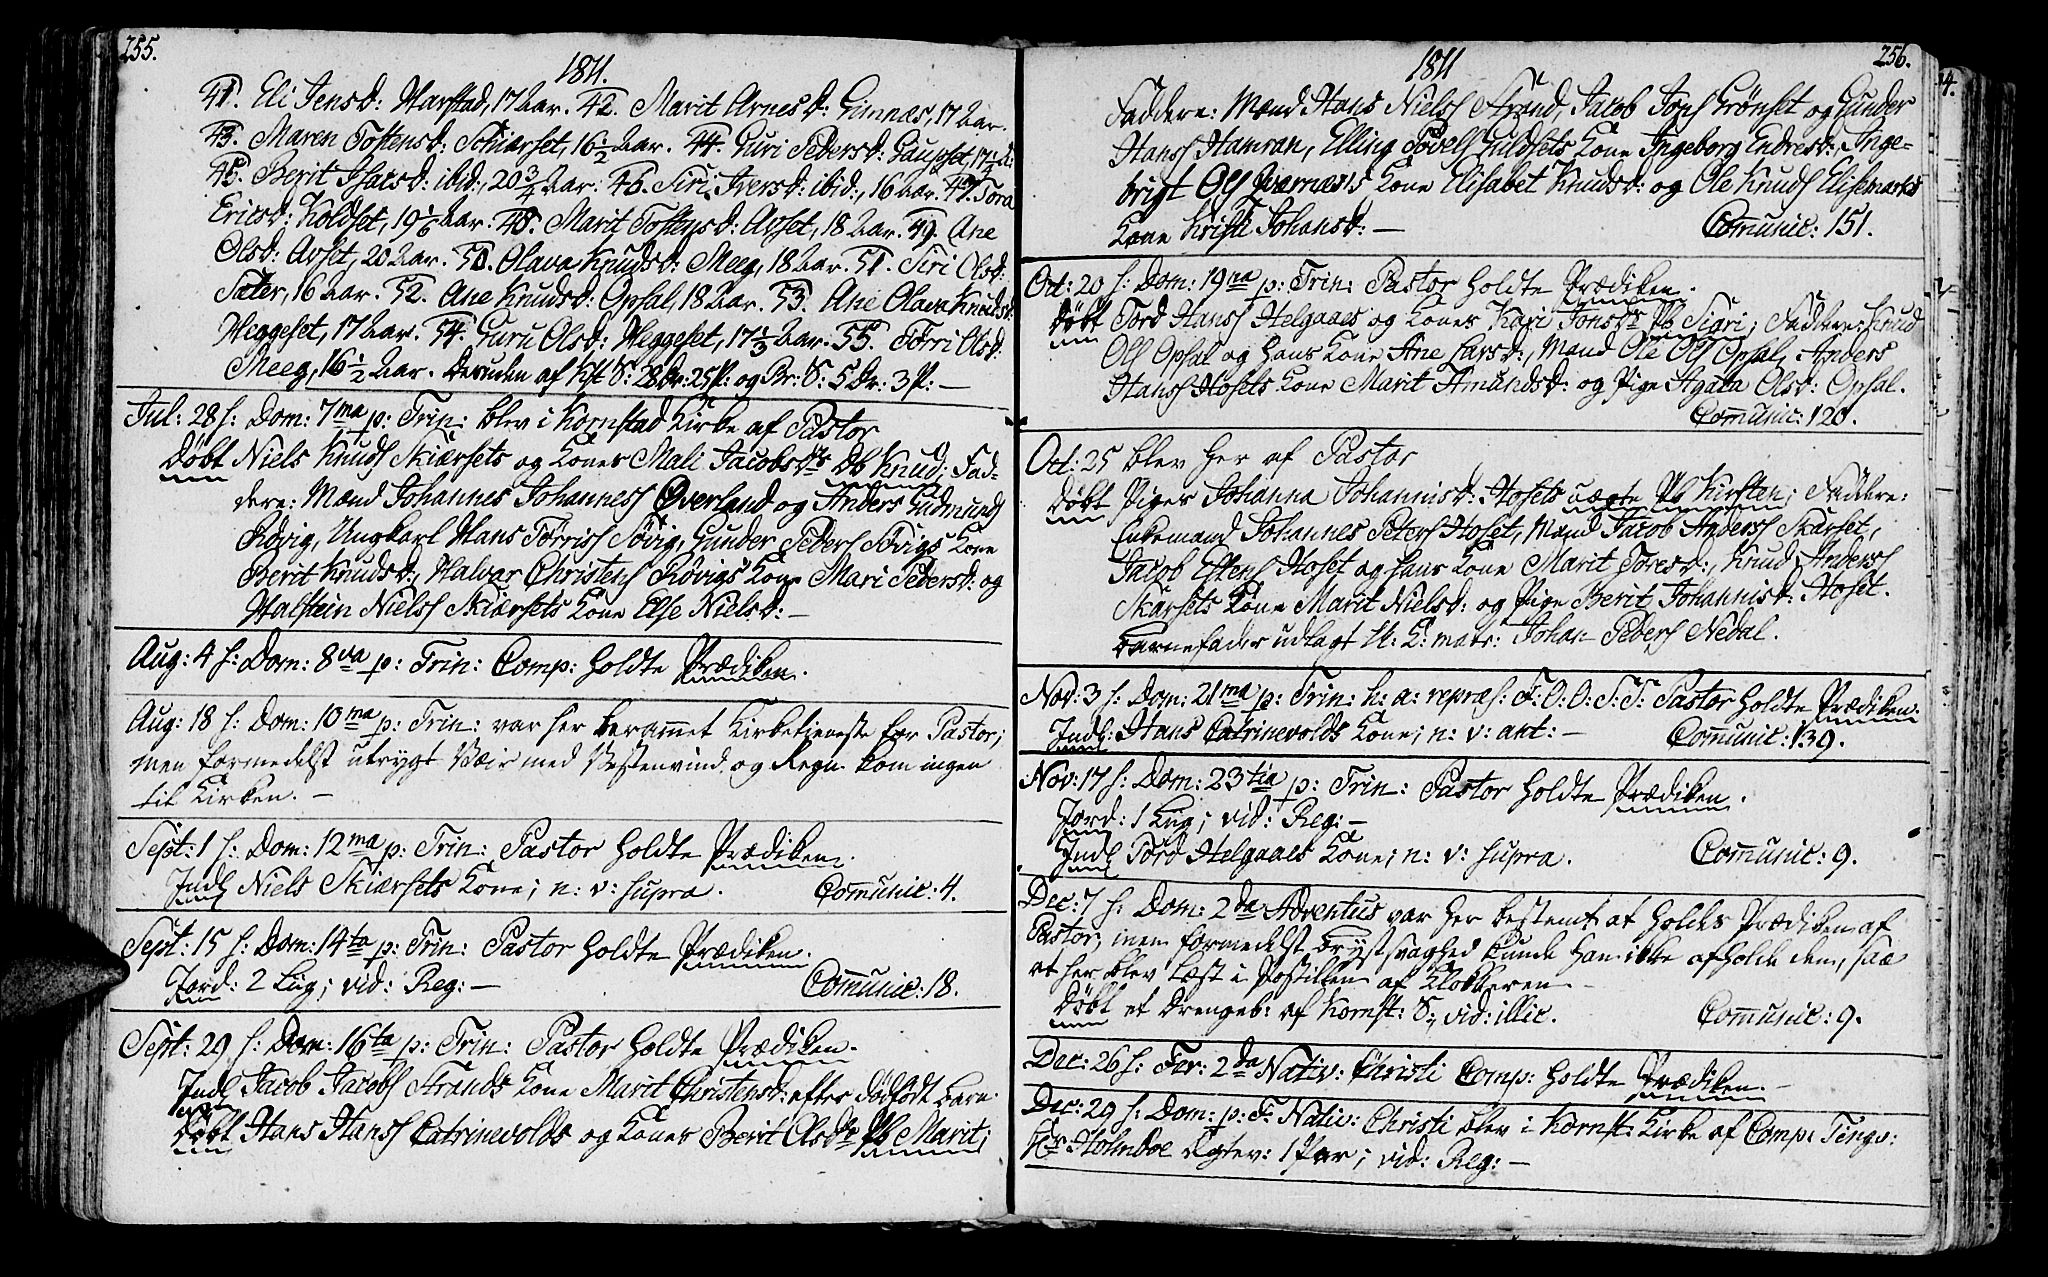 255.
1811.
41. Eli Jensd: Harstad, 17 Aar. 42. Marit Arnesd: Gimnæs, 17 Aar.
43. Maren Tostensd: Schiærset, 16 1/2 Aar. 44. Guri Pedersd: Gaupset, 17 1/4 A:
45. Berit Isacsd: ibid:, 20 3/4 Aar. 46. Siri Iversd: ibid:, 16 Aar. 47. Tora
Ericsd: Koldset, 19 1/6 Aar. 48. Marit Tostensd: Avset, 18 Aar. 49. Ane
Olsd: Avset, 20 Aar. 50. Olava Knudsd: Meeg, 18 Aar. 51. Siri Olsd:
Sæter, 16 Aar. 52. Ane Knudsd: Opsal, 18 Aar. 53. Ane Olava Knudsd:
Heggeset, 17 Aar. 54. Guru Olsd: Heggeset, 17 1/3 Aar. 55. Tørri Olsd:
Meeg, 16 1/2 Aar. Desuden af Kst S: 28 Dr: 25 P: og Br: S: 5 Dr: 3 P: —
Jul: 28 s: Dom: 7ma p: Trin: blev i Kornstad Kirke af Pastor
Døbt Niels Knuds Skiærsets og Kones Mali Jacobsdr Db Knud; Fad-
dere: Mænd Johannes Johanness Øverland og Anders Gudmunds
Røvig, Ungkarl Hans Tørriss Søvig, Gunder Peders Søvigs Kone
Berit Knudsd:, Halvar Christens Røvigs Kone Mari Pedersd: og
Halstein Niels Skiærsets Kone Else Nielsd: —
Aug: 4 s: Dom: 8va p: Trin: Comp: holdte Prædiken.
Aug: 18 s: Dom: 10ma p: Trin: var her beram̄et Kirketieneste for Pastor;
men formedelst utrygt Veir med Vestenvind og Regn kom ingen
til Kirken. —
Sept: 1 s: Dom: 12ma p: Trin: Pastor holdte Prædiken.
Indl Niels Skiærsets Kone; n: v: supra. Com̄unic: 4.
Sept: 15 s: Dom: 14ta p: Trin: Pastor holdte Prædiken.
Jord: 2 Liig; vid: Reg: — Com̄unic: 18.
Sept: 29 s: Dom: 16ta p: Trin: Pastor holdte Prædiken.
Indl Jacob Jacobs Strands Kone Marit Christensd: efter dødfødt Barn.
Døbt Hans Hans Catrinevolds og Kones Berit Olsdr Pb Marit;
256.
1811
Faddere: Mænd Hans Niels Strand, Jacob Jons Grønset og Gunder
Hans Hamran, Elling Povels Guldsets Kone Ingeborg Endresd:, Inge-
brigt Ols Qvernæss Kone Elisabet Knudsd: og Ole Knuds Elisemarks
Kone Kristi Johansd: — Com̄unic: 151.
Oct: 20 s: Dom: 19na p: Trin: Pastor holdte Prædiken.
Døbt Tord Hans Helgaaes og Kones Kari Jonsdr Pb Sigri; Faddere: Knud
Ols Opsal og hans Kone Ane Larsd:, Mand Ole Ols Opsal, Anders
Hans Hosets Kone Marit Amundsd: og Pige Agata Olsd: Opsal.
Com̄unic: 120.
Oct: 25 blev her af Pastor
Døbt Piges Johanna Johannisd: Hosets uægte Pb Kirsten; Faddere:
Enkemand Johannes Peters Hoset, Mænd Jacob Anders Skarset,
Jacob Estens Hoset og hans Kone Marit Toresd:, Knud Anders
Skarsets Kone Marit Nielsd: og Pige Berit Johannisd: Hoset.
Barnefader udlagt U: K: mats: Johan Peders Nedal.
Nov: 3 s: Dom: 21ma p: Trin: h: a: repræs: F: O: O: S: T: Pastor holdte Prædiken.
Indl: Hans Catrinevolds Kone; n: v: ant: — Com̄unic: 139.
Nov: 17 s: Dom: 23tia p: Trin: Pastor holdte Prædiken.
Jord: 1 Liig; vid: Reg: —
Indl Tord Helgaaes Kone; n: v: supra. Com̄unic: 9.
Dec: 7 s: Dom: 2da Adventus var her bestemt at holdes Prædiken af
Pastor; men formedelst Brystsvaghed kunde han ikke afholde dem, saa
at her blev læst i Postillen af Klokkeren.
Døbt et Drengeb: af Kornst: S:, vid: illic. Com̄unic: 9.
Dec: 26 s: Fer: 2da Nativ: Christi Comp: holdte Prædiken. —
Dec: 29 s: Dom: p: F: Nativ: Christi blev i Kornst: Kirke af Comp: Tingv:
Hr Holmboe Ægtev: 1 Par; vid: Reg: —